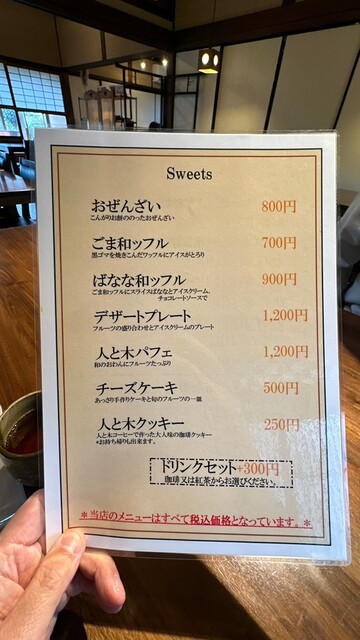 Sweets
おぜんざい 800円
こんがりお餅ののったおぜんざい
ごま和ッフル 700円
黒ゴマを焼きこんだワッフルにアイスがとろり
ばなな和ッフル 900円
ごま和ッフルにスライスばななとアイスクリーム、
チョコレートソースで
デザートプレート 1,200円
フルーツの盛り合わせとアイスクリームのプレート
人と木パフェ 1,200円
和のおわんにフルーツたっぷり
チーズケーキ 500円
あっさり手作りケーキと旬のフルーツの一皿
人と木クッキー 250円
人と木コーヒーで作った大人味の珈琲クッキー
*お持ち帰りも出来ます。
ドリンクセット+300円
珈琲又は紅茶からお選びください。
*当店のメニューはすべて税込価格となっています。*